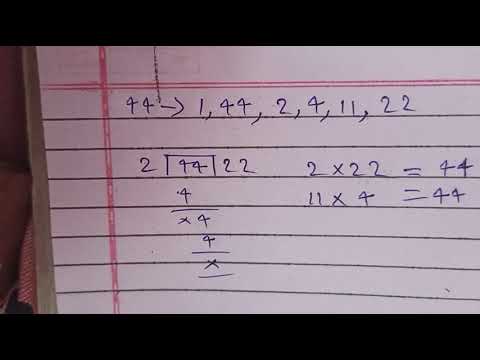 44 → 1, 44, 2, 4, 11, 22
2 | 44 | 22 2 × 22 = 44
4 11 × 4 = 44
× 4
4
×